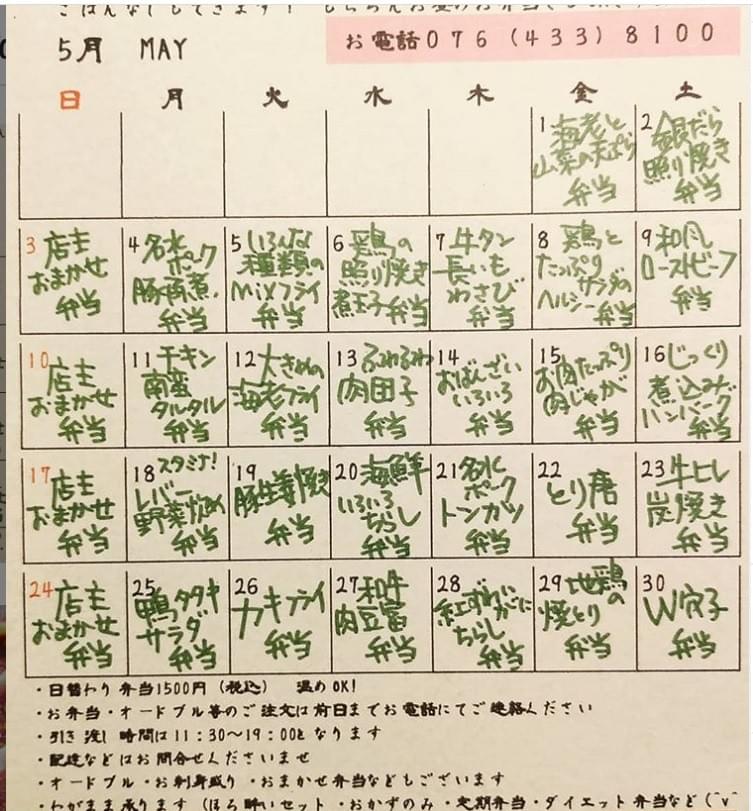 ごはんなしもできます！
5月 MAY
お電話076(433)8100
日 月 火 水 木 金 土
1 海老と
山菜の天ぷら
弁当
2 銀だら
照り焼き
弁当
3 店主
おまかせ
弁当
4 名水
ポーク
豚角煮
弁当
5 いろんな
種類の
Mixフライ
弁当
6 鶏の
照り焼き
煮玉子弁当
7 牛タン
長いも
わさび
弁当
8 鶏と
たっぷり
サラダの
ヘルシー弁当
9 和風
ローストビーフ
弁当
10 店主
おまかせ
弁当
11 チキン
南蛮
タルタル
弁当
12 大きめの
海老フライ
弁当
13 ふわふわ
肉団子
弁当
14 おばんざい
いろいろ
弁当
15 お肉たっぷり
肉じゃが
弁当
16 じっくり
煮込み
ハンバーグ
弁当
17 店主
おまかせ
弁当
18 スタミナ!
レバー
野菜炒め
弁当
19 豚生姜焼き
弁当
20 海鮮
いろいろ
ちらし
弁当
21 名水
ポーク
トンカツ
弁当
22 とり唐
弁当
23 牛ヒレ
炭焼き
弁当
24 店主
おまかせ
弁当
25 鴨タタキ
サラダ
弁当
26 カキフライ
弁当
27 和牛
肉豆富
弁当
28 紅ずわいがに
ちらし
弁当
29 地鶏の
焼とり
弁当
30 W穴子
弁当
・日替わり弁当1500円(税込) 温めOK!
・お弁当・オードブル等のご注文は前日までお電話にてご連絡ください
・引き渡し時間は11:30~19:00となります
・配達などはお問合せくださいませ
・オードブル・お刺身盛り・おまかせ弁当などもございます
・わがまま承ります(ほろ酔いセット・おかずのみ・定期弁当・ダイエット弁当など(^v^